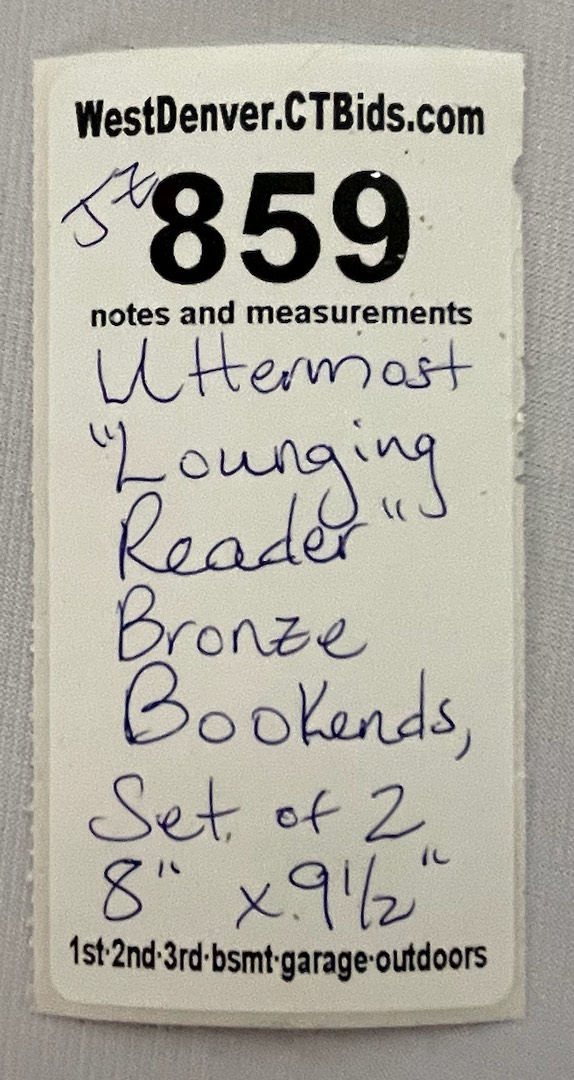 WestDenver.CTBids.com
859
notes and measurements
Uttermost
"Lounging
Reader"
Bronze
Bookends,
Set of 2
8" x 9 1/2"
1st·2nd·3rd·bsmt·garage·outdoors